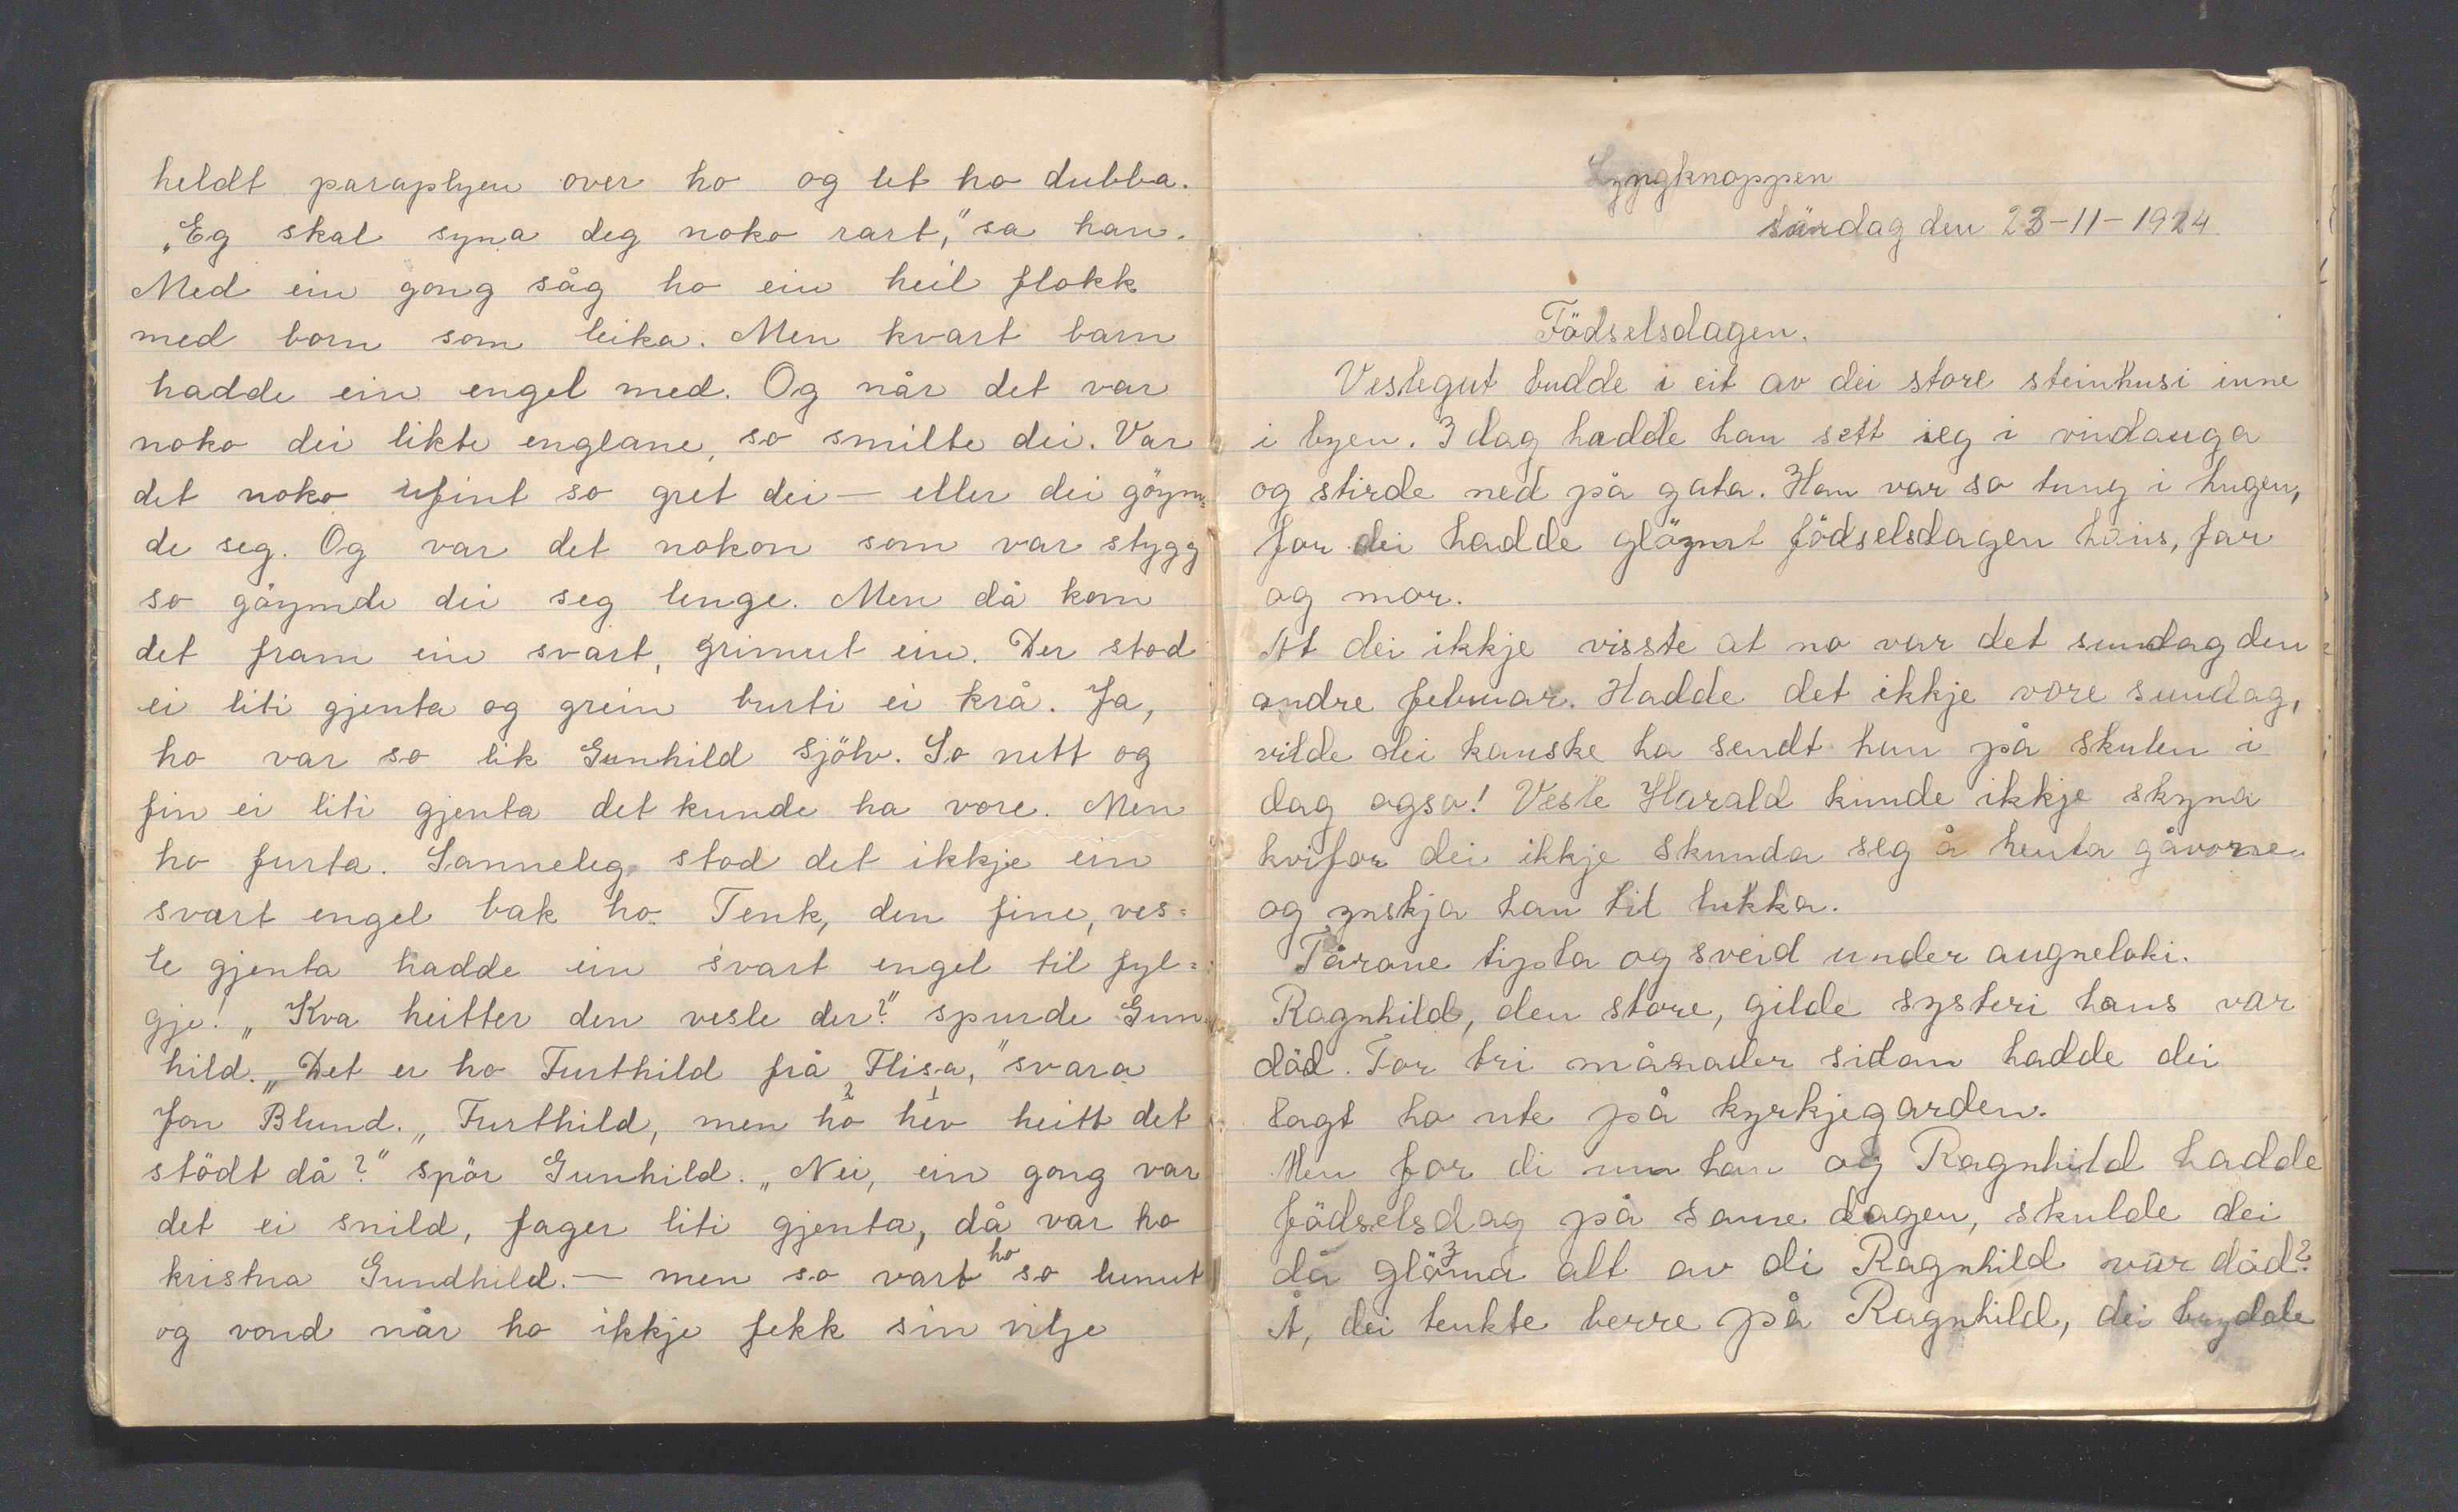 heldt paraplyen over ho og let ho dubba.
„Eg skal syna deg noko rart,” sa han.
Med ein gong såg ho ein heil flokk
med born som leika. Men kvart barn
hadde ein engel med. Og når det var
noko dei likte englane, so smilte dei. Var
det noko ufint so gret dei — eller dei göym=
de seg. Og var det nokon som var stygg
so göymde dei seg lenge. Men då kom
det fram ein svart, grimut ein. Der stod
ei liti gjenta og grein burti ei krå. Ja,
ho var so lik Gunhild sjölv. So nett og
fin ei liti gjenta det kunde ha vore. Men
ho furta. Sanneleg stod det ikkje ein
svart engel bak ho. Tenk, den fine, ves=
le gjenta hadde ein svart engel til fyl=
gje! „Kva heitter den vesle der?” spurde Gun
hild. „Det er ho Furthild frå Flisa,” svara
Jon Blund. „Furthild, men ho hev heitt det
stödt då?” spör Gunhild. „Nei, ein gong var
det ei snild, fager liti gjenta, då var ho
kristna Gundhild. — men so vart ho so lunut
og vond når ho ikkje fekk sin vilje
Lyngknoppen
sundag den 23-11-1924
Födselsdagen.
Veslegut budde i eit av dei store steinhusi inne
i byen. I dag hadde han sett seg i vindauga
og stirde ned på gata. Han var so tung i hugen,
for dei hadde glöymt födselsdagen hans, far
og mor.
At dei ikkje visste at no var det sundag den
andre februar. Hadde det ikkje vore sundag,
vilde dei kanske ha sendt han på skulen i
dag ogso! Vesle Harald kunde ikkje skyna
kvifor dei ikkje skunda seg å henta gåvorne
og ynskja han til lukka.
Tårone tipta og sveid under augneloki.
Ragnhild, den store, gilde systeri hans var
död. For tri månader sidan hadde dei
lagt ho ute på kyrkjegarden.
Men for di um han og Ragnhild hadde
födselsdag på same dagen, skulde dei
då glöyma alt av di Ragnhild var död?
Å, dei tenkte berre på Ragnhild, dei brydde